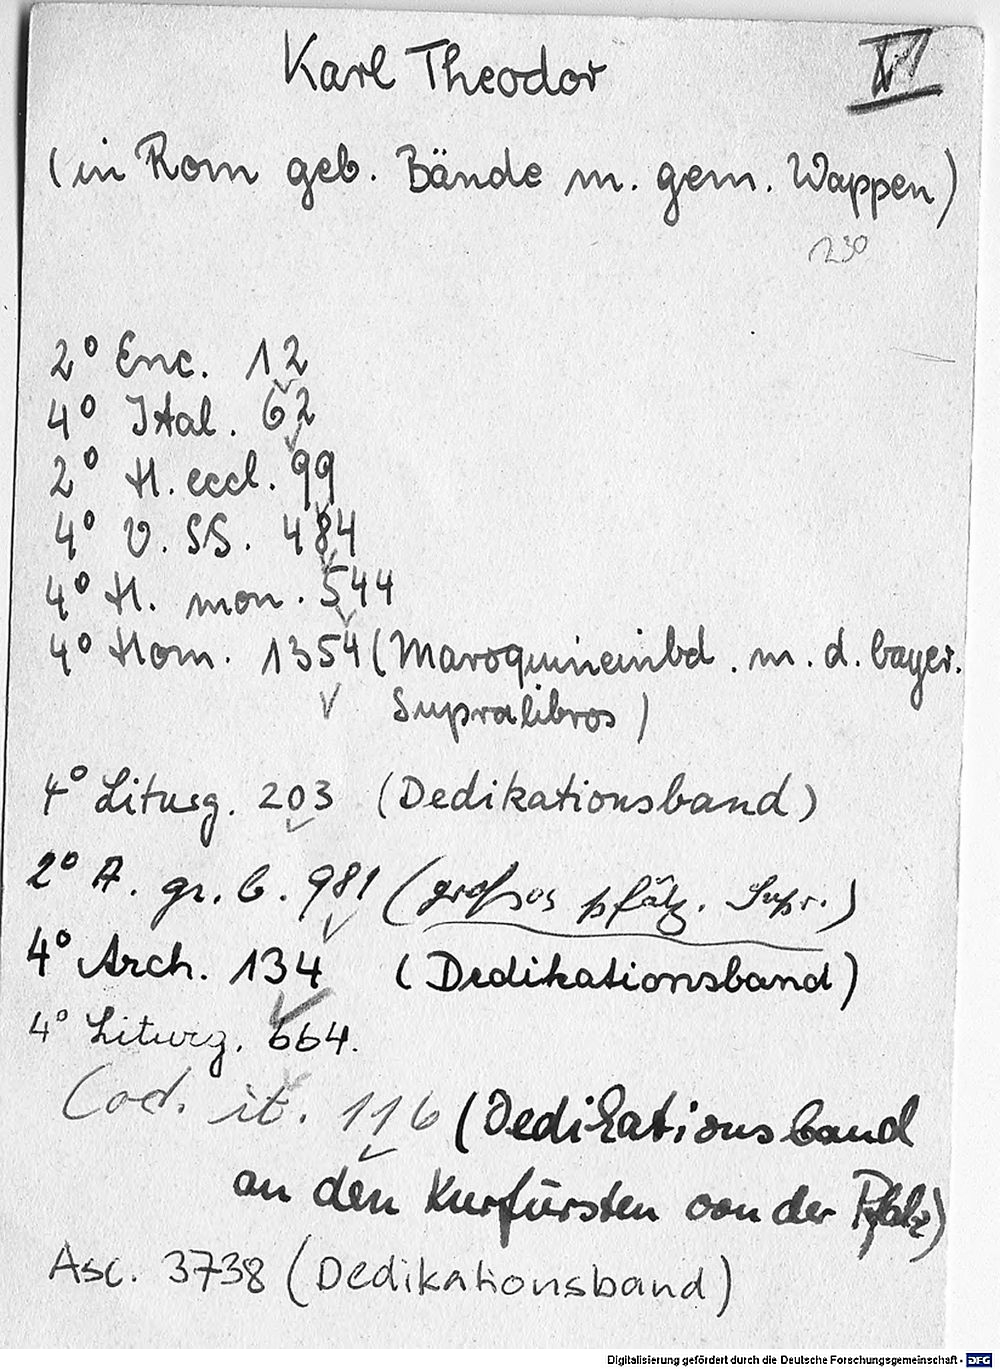 Karl Theodor
VI
(in Rom geb. Bände m. gem. Wappen)
230
2° Enc. 12
4° Ital. 62
2° H. eccl. 99
4° V. SS. 484
4° H. mon. 544
4° Hom. 1354 (Maroquineinbd. m. d. bayer.
Supralibros)
4° Liturg. 203 (Dedikationsband)
2° A. gr. b. 981 (großes pfälz. Supr.)
4° Arch. 134 (Dedikationsband)
4° Liturg. 664.
Cod. it. 116 (Dedikationsband
an den Kurfürsten von der Pfalz)
Asc. 3738 (Dedikationsband)
Digitalisierung gefördert durch die Deutsche Forschungsgemeinschaft - DFG